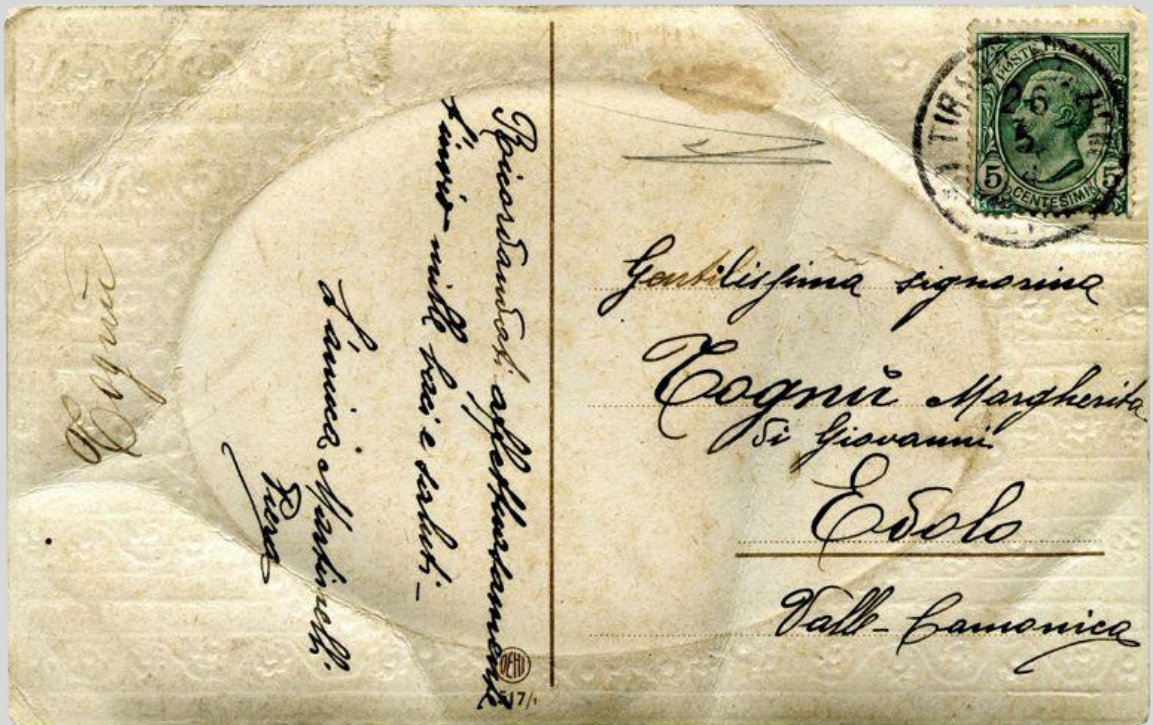 Ricordandoti affettuosamente
t'invio mille baci e saluti -
L'amica Martinelli
Piera
Tognù
POSTE ITALIANE
5 CENTESIMI 5
TIRANO
26
5
Gentilissima signorina
Tognù Margherita
di Giovanni
Edolo
Valle-Camonica
517/1